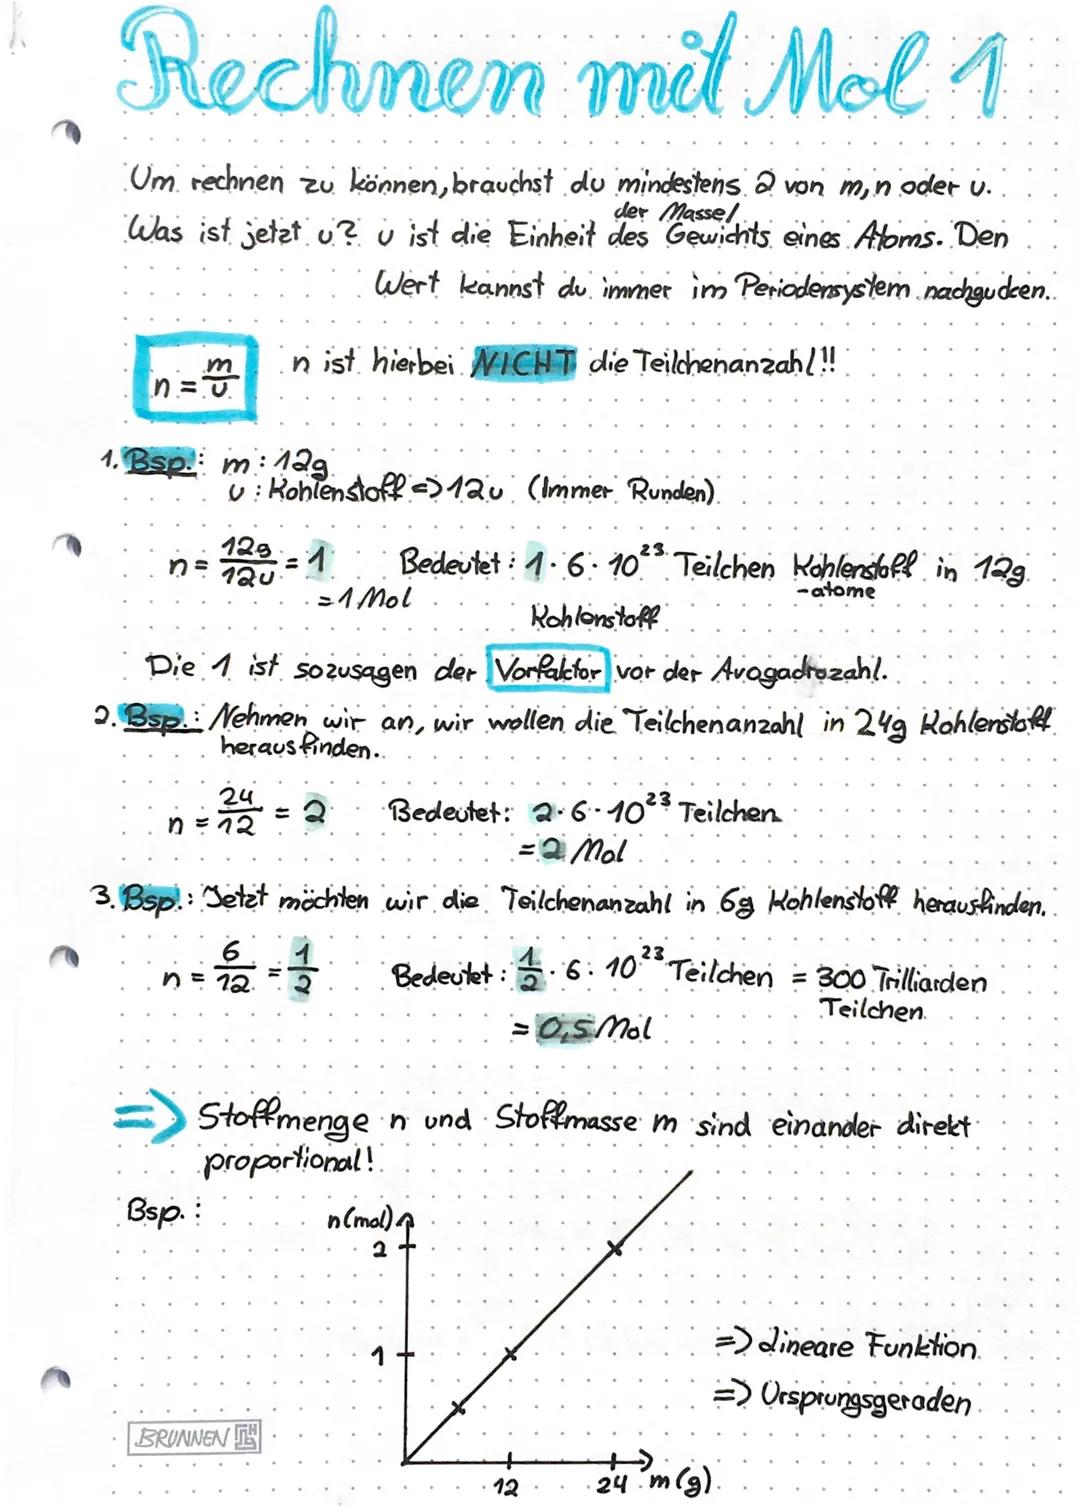 Rechnen mit Mol 1
Um rechnen zu können, brauchst du mindestens 2 von m, n oder u.
der Masse/
Was ist jetzt u? u ist die Einheit des Gewichts eines Atoms. Den
Wert kannst du immer im Periodensystem nachgucken.
n = m/u n ist hierbei NICHT die Teilchenanzahl!!
1. Bsp.: m: 12g
u: Kohlenstoff => 12u (Immer Runden)
n = 12g/12u = 1 Bedeutet: 1 · 6 · 10²³ Teilchen Kohlenstoff in 12g
-atome
= 1 Mol
Kohlenstoff
Die 1 ist sozusagen der Vorfaktor vor der Avogadrozahl.
2. Bsp.: Nehmen wir an, wir wollen die Teilchenanzahl in 24g Kohlenstoff
herausfinden.
n = 24/12 = 2 Bedeutet: 2 · 6 · 10²³ Teilchen
= 2 Mol
3. Bsp.: Jetzt möchten wir die Teilchenanzahl in 6g Kohlenstoff herausfinden.
n = 6/12 = 1/2 Bedeutet: 1/2 · 6 · 10²³ Teilchen = 300 Trilliarden
Teilchen
= 0,5 Mol
=> Stoffmenge n und Stoffmasse m sind einander direkt
proportional!
Bsp.:
n(mol)
2
1
=> Lineare Funktion
=> Ursprungsgeraden
BRUNNEN
12 24 m(g)